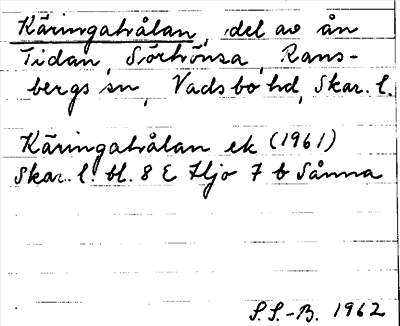 Käringatrålan, del av ån
Tidan, Sörtrönsa, Rans-
bergs sn, Vadsbo hd, Skar. l.
Käringatrålan ek (1961)
Skar. l. bl. 8 E Hjo 7 b Sånna
S.S.-B. 1962